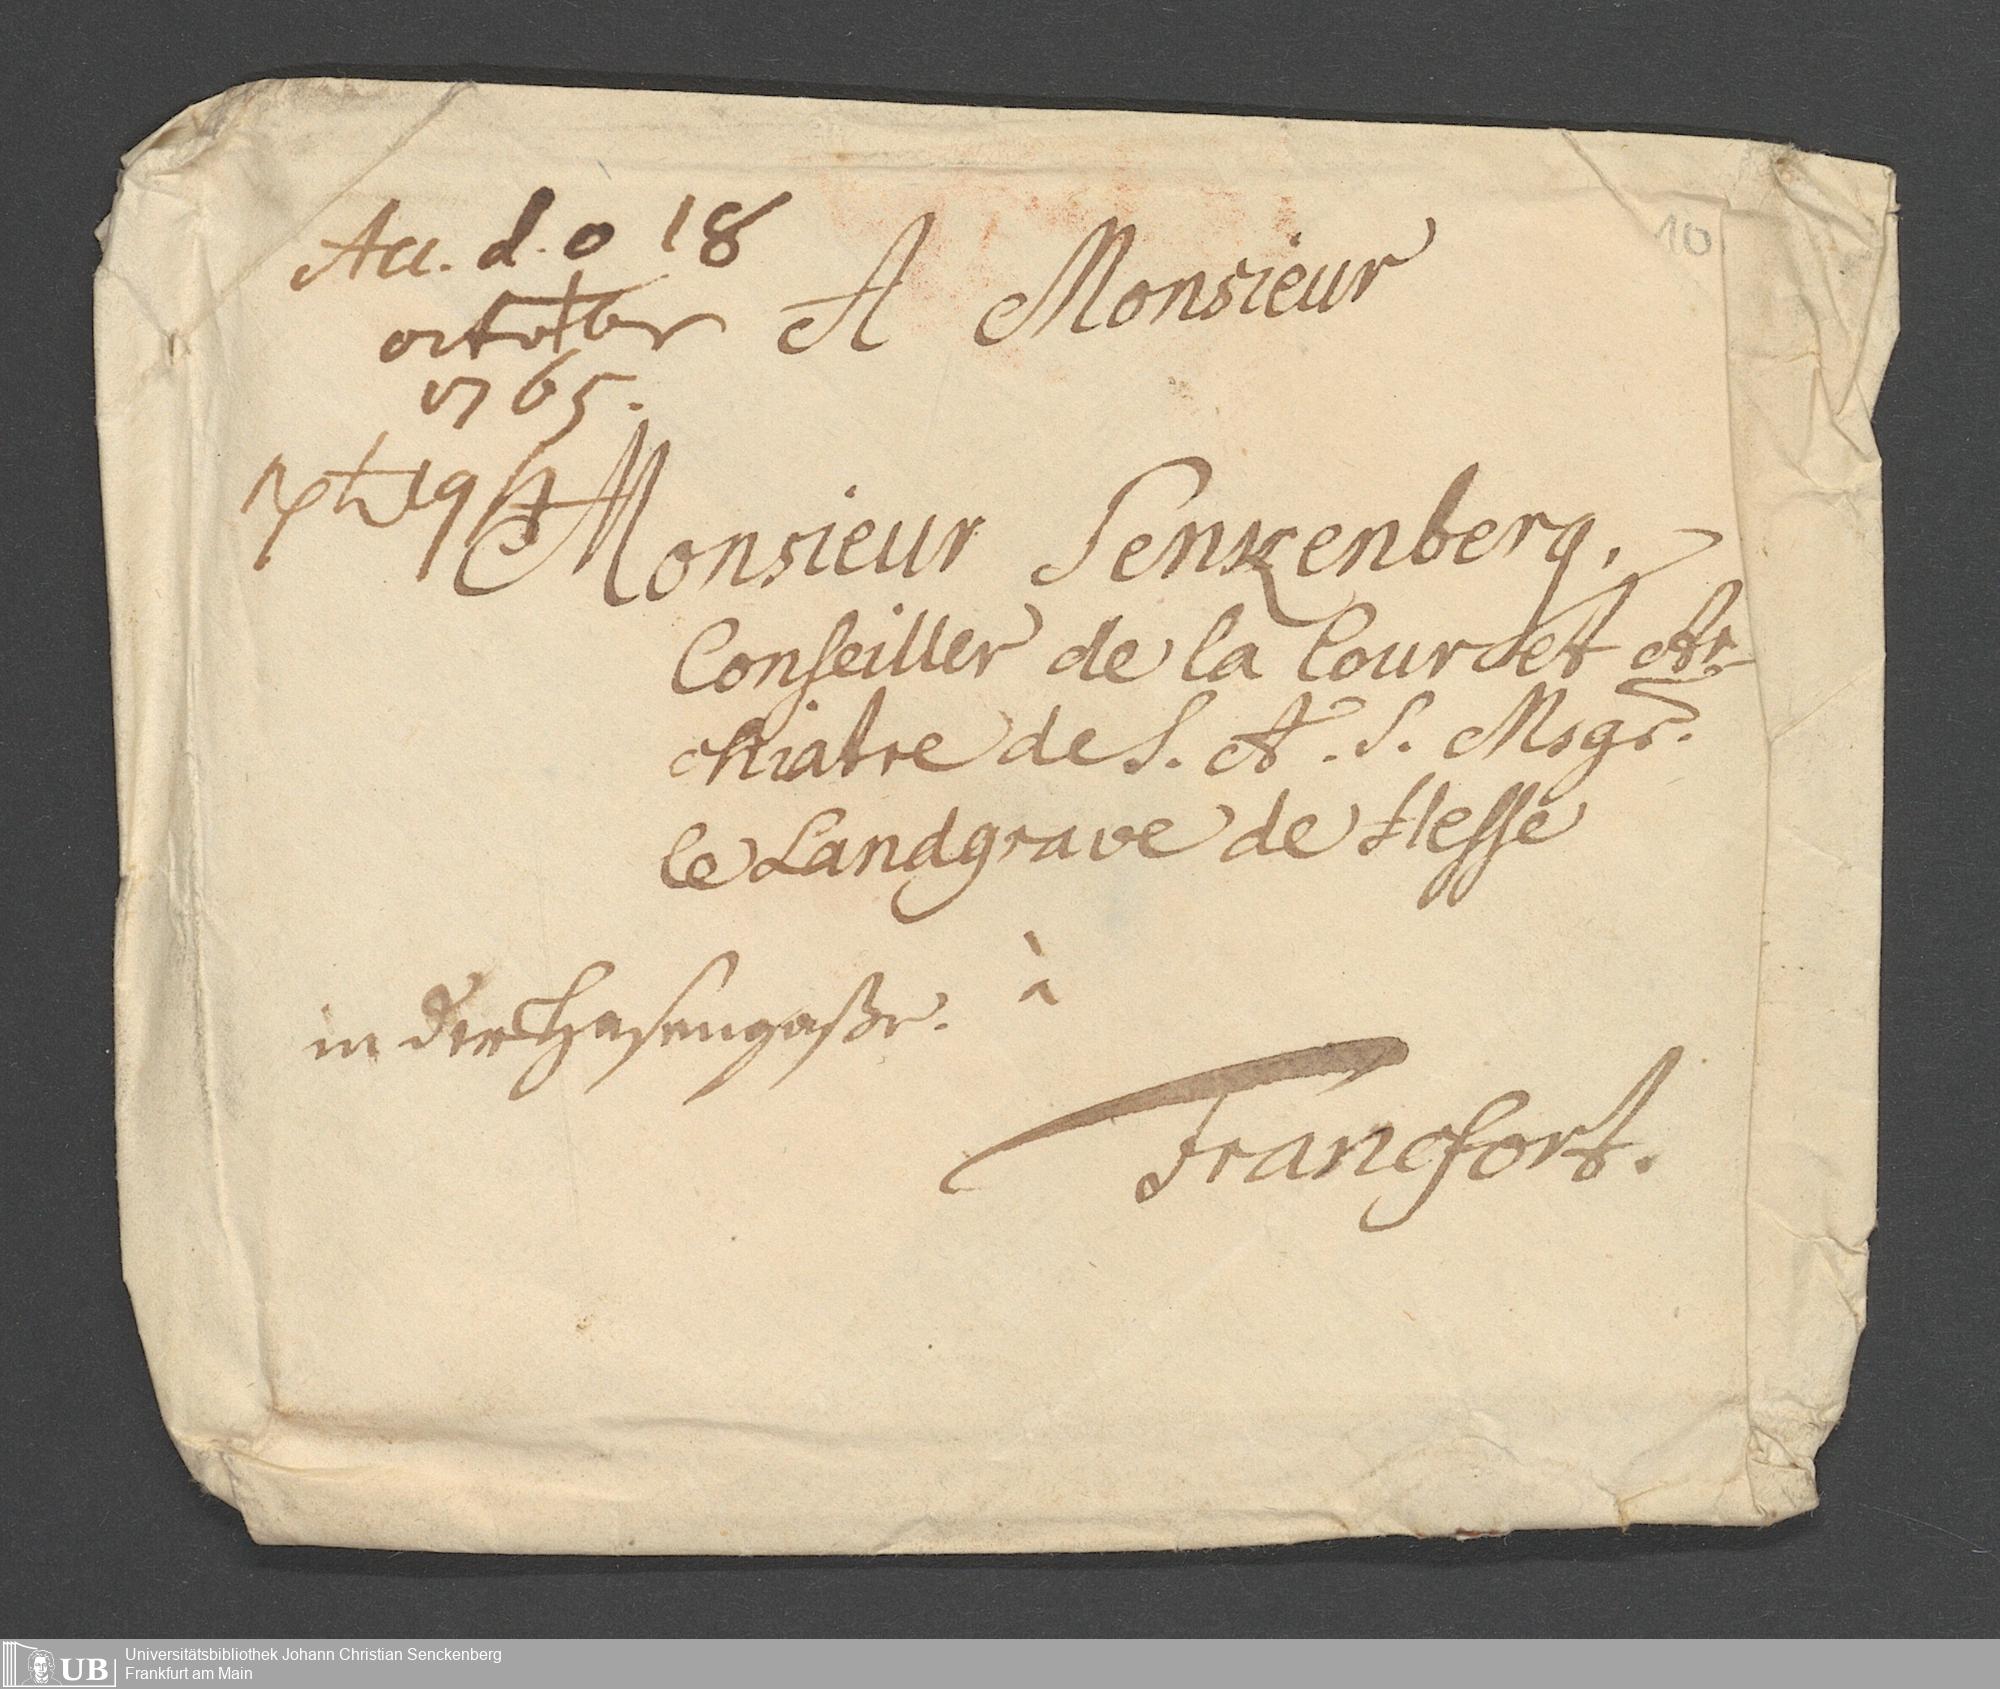 Acc. d. 18
october
1765.
10
A Monsieur
Monsieur Senkenberg,
Conseiller de la Cour et Ar-
chiatre de S. A. S. Msgr.
le Landgrave de Hesse
à
in der Hasengaße.
Francfort.
UB
Universitätsbibliothek Johann Christian Senckenberg
Frankfurt am Main